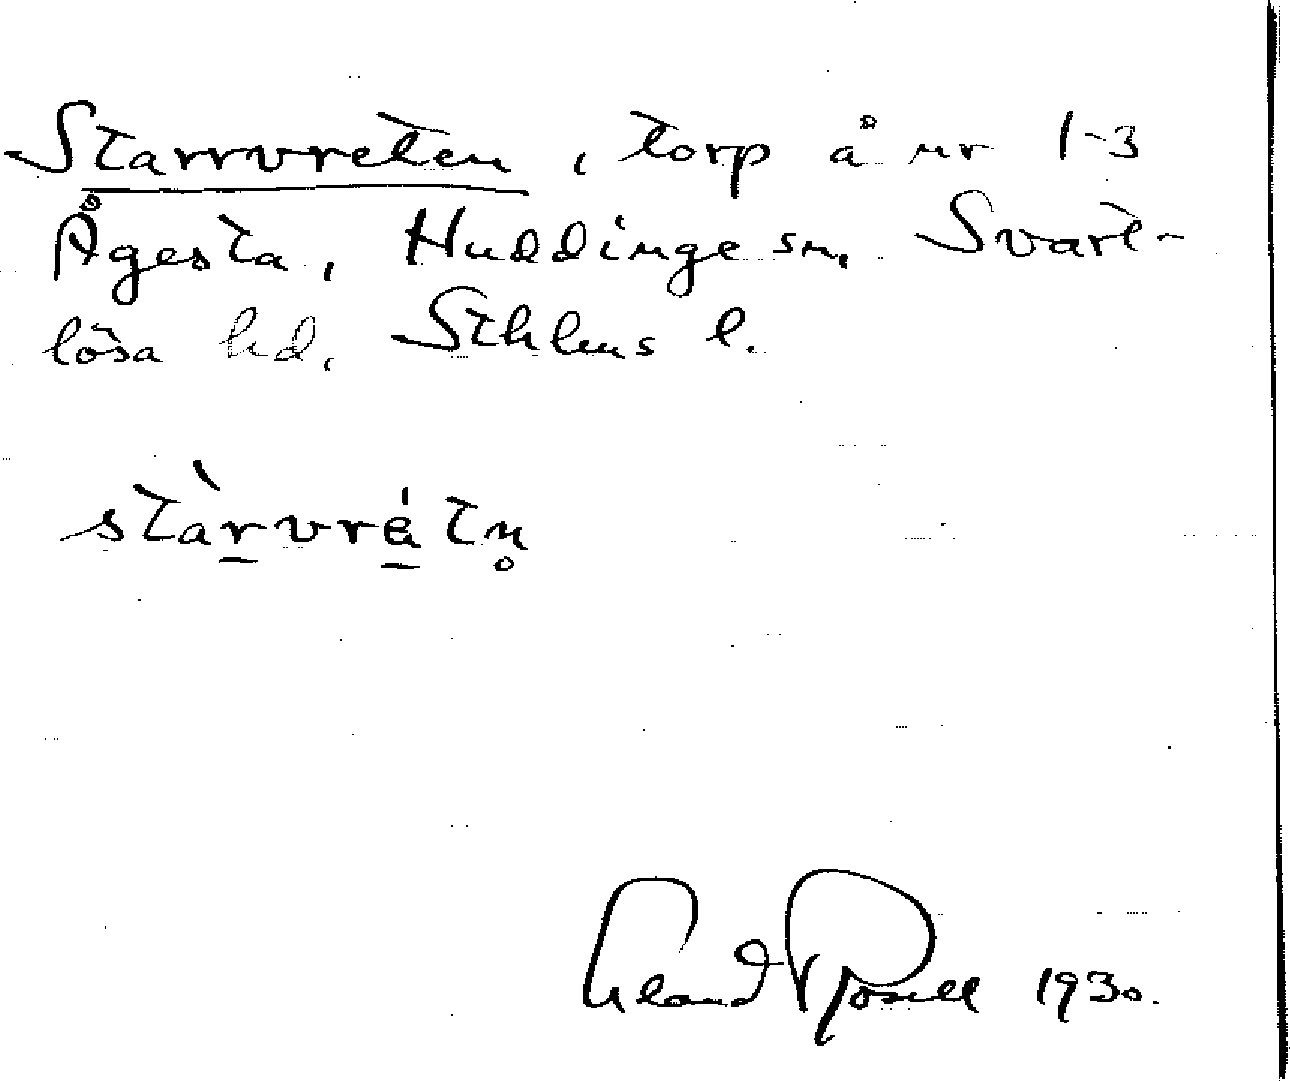 Starrvreten, torp å nr 1-3
Ågesta, Huddinge sn, Svart-
lösa hd, Sthlms l.
stàrvrétn̥
Rosell 1930.